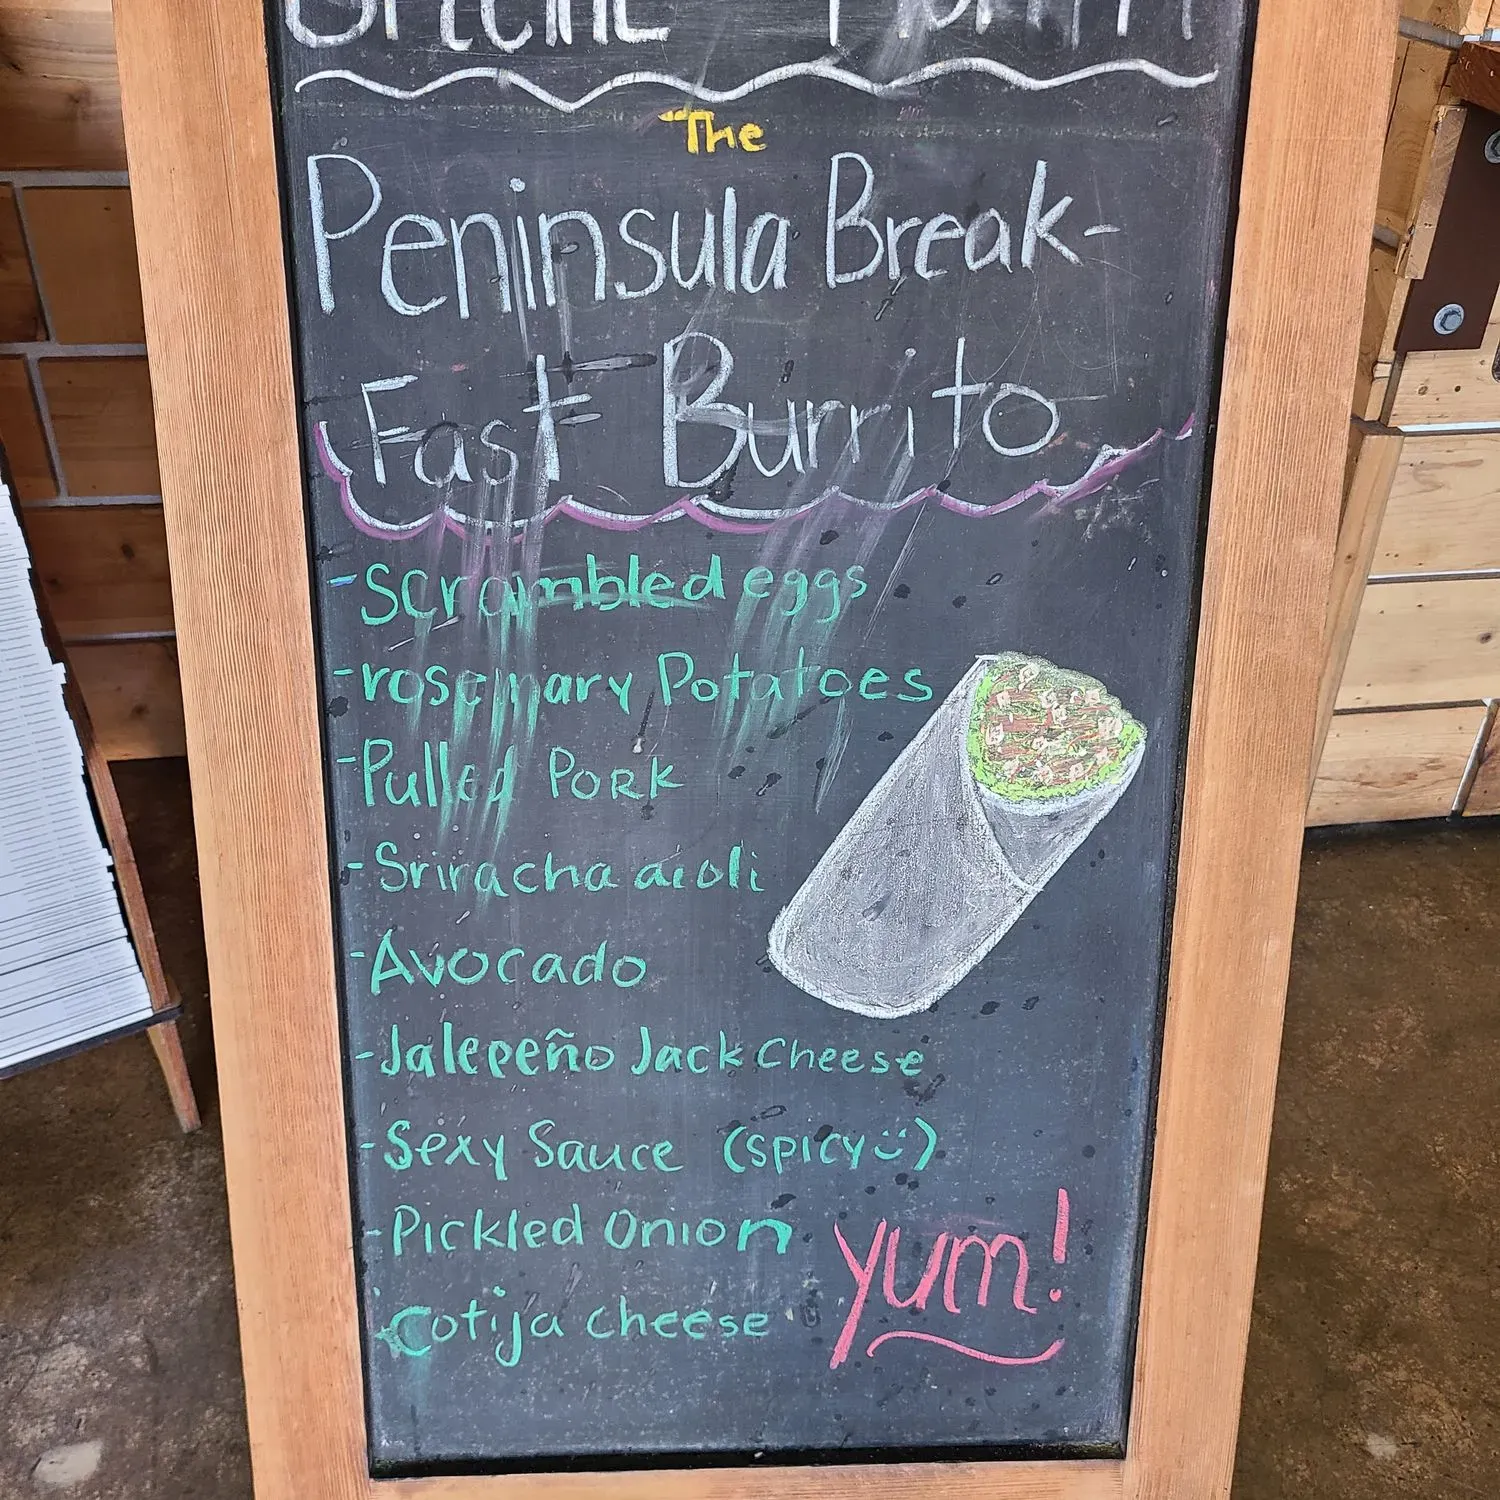 The
Peninsula Break-
Fast Burrito
- Scrambled eggs
- rosemary Potatoes
- Pulled PORK
- Sriracha aioli
- Avocado
- Jalepeño Jack Cheese
- Sexy Sauce (SPICY :))
- Pickled Onion
- Cotija cheese
yum!